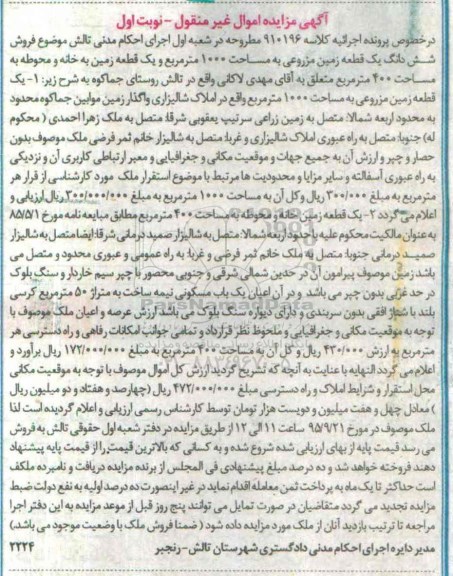 آگهی مزایده اموال غیر منقول - نوبت اول
درخصوص پرونده اجرائیه کلاسه ۹۱۰۱۹۶ مطروحه در شعبه اول اجرای احکام مدنی تالش موضوع فروش
شش دانگ یک قطعه زمین مزروعی به مساحت ۱۰۰۰ مترمربع و یک قطعه زمین به خانه و محوطه به
مساحت ۴۰۰ مترمربع متعلق به آقای مهدی لاکانی واقع در تالش روستای جماکوه به شرح زیر: ۱- یک
قطعه زمین مزروعی به مساحت ۱۰۰۰ مترمربع واقع در املاک شالیزاری واگذار زمین موابین جماکوه محدود
به محدود اربعه شمالا: متصل به زمین زراعی سرتیپ یعقوبی شرقا: متصل به ملک زهرا احمدی ( محکوم
له) جنوبا: متصل به راه عبوری املاک شالیزاری و غربا: متصل به شالیزار خانم ثمر فرضی ملک موصوف بدون
حصار و چپر و ارزش آن به جمیع جهات و موقعیت مکانی و جغرافیایی و معبر ارتباطی کاربری آن و نزدیکی
به راه عبوری آسفالته و سایر مزایا و محدودیت ها مرتبط با موضوع استقرار ملک مورد کارشناسی از قرار هر
مترمربع به مبلغ ۳۰۰/۰۰۰ ریال و کل آن به مساحت ۱۰۰۰ مترمربع به مبلغ ۳۰۰/۰۰۰/۰۰۰ ریال ارزیابی و
اعلام می گردد ۲- یک قطعه زمین خانه و محوطه به مساحت ۴۰۰ مترمربع مطابق مبایعه نامه مورخ ۸۵/۵/۱
به عنوان مالکیت محکوم علیه با حدود اربعه شمالا: متصل به شالیزار صمید درمانی شرقا: ایضا متصل به شالیزار
صمید درمانی جنوبا: متصل به ملک خانم ثمر فرضی و غربا: به راه عمومی و عبوری محدود و متصل می
باشد زمین موصوف پیرامون آن در حدین شمالی شرقی و جنوبی محصور با چپر سیم خاردار و سنگ بلوک
در حد غربی بدون چپر می باشد و در آن اعیان یک باب مسکونی نیمه ساخت به متراژ ۵۰ مترمربع کرسی
بلند با شناژ افقی بدون سربندی و دارای دیواره سنگ بلوک می باشد ارزش عرصه و اعیان ملک موصوف با
توجه به موقعیت مکانی و جغرافیایی و ملحوظ نظر قرارداد و تمامی جوانب امکانات رفاهی و راه دسترسی هر
مترمربع به ارزش ۴۳۰/۰۰۰ ریال و کل آن به مساحت ۴۰۰ مترمربع به مبلغ ۱۷۲/۰۰۰/۰۰۰ ریال برآورد و
اعلام می گردد النهایه با عنایت به آنچه که تشریح گردید ارزش کل اموال موصوف با توجه به موقعیت مکانی
محل استقرار و شرایط املاک و راه دسترسی مبلغ ۴۷۲/۰۰۰/۰۰۰ ریال (چهارصد و هفتاد و دو میلیون ریال
) معادل چهل و هفت میلیون و دویست هزار تومان توسط کارشناس رسمی ارزیابی و اعلام گردیده است لذا
ملک موصوف در مورخ ۹۵/۹/۲۱ ساعت ۱۱ الی ۱۲ از طریق مزایده در دفتر شعبه اول حقوقی تالش به فروش
می رسد قیمت پایه از بهای ارزیابی شده شروع شده و به کسانی که بالاترین قیمت را از قیمت پایه پیشنهاد
دهند فروخته خواهد شد و ده درصد مبلغ پیشنهادی فی المجلس از برنده مزایده دریافت و نامبرده مکلف
است حداکثر تا یک ماه به پرداخت ثمن معامله اقدام نماید در غیر اینصورت ده درصد اولیه به نفع دولت ضبط
مزایده تجدید می گردد متقاضیان در صورت تمایل می توانند پنج روز قبل از موعد مزایده به این دفتر اجرا
مراجعه تا ترتیب بازدید آنان از ملک مورد مزایده داده شود ( ضمنا فروش ملک با وضعیت موجود می باشد)
مدیر دایره اجرای احکام مدنی دادگستری شهرستان تالش - رنجبر ۲۲۲۴